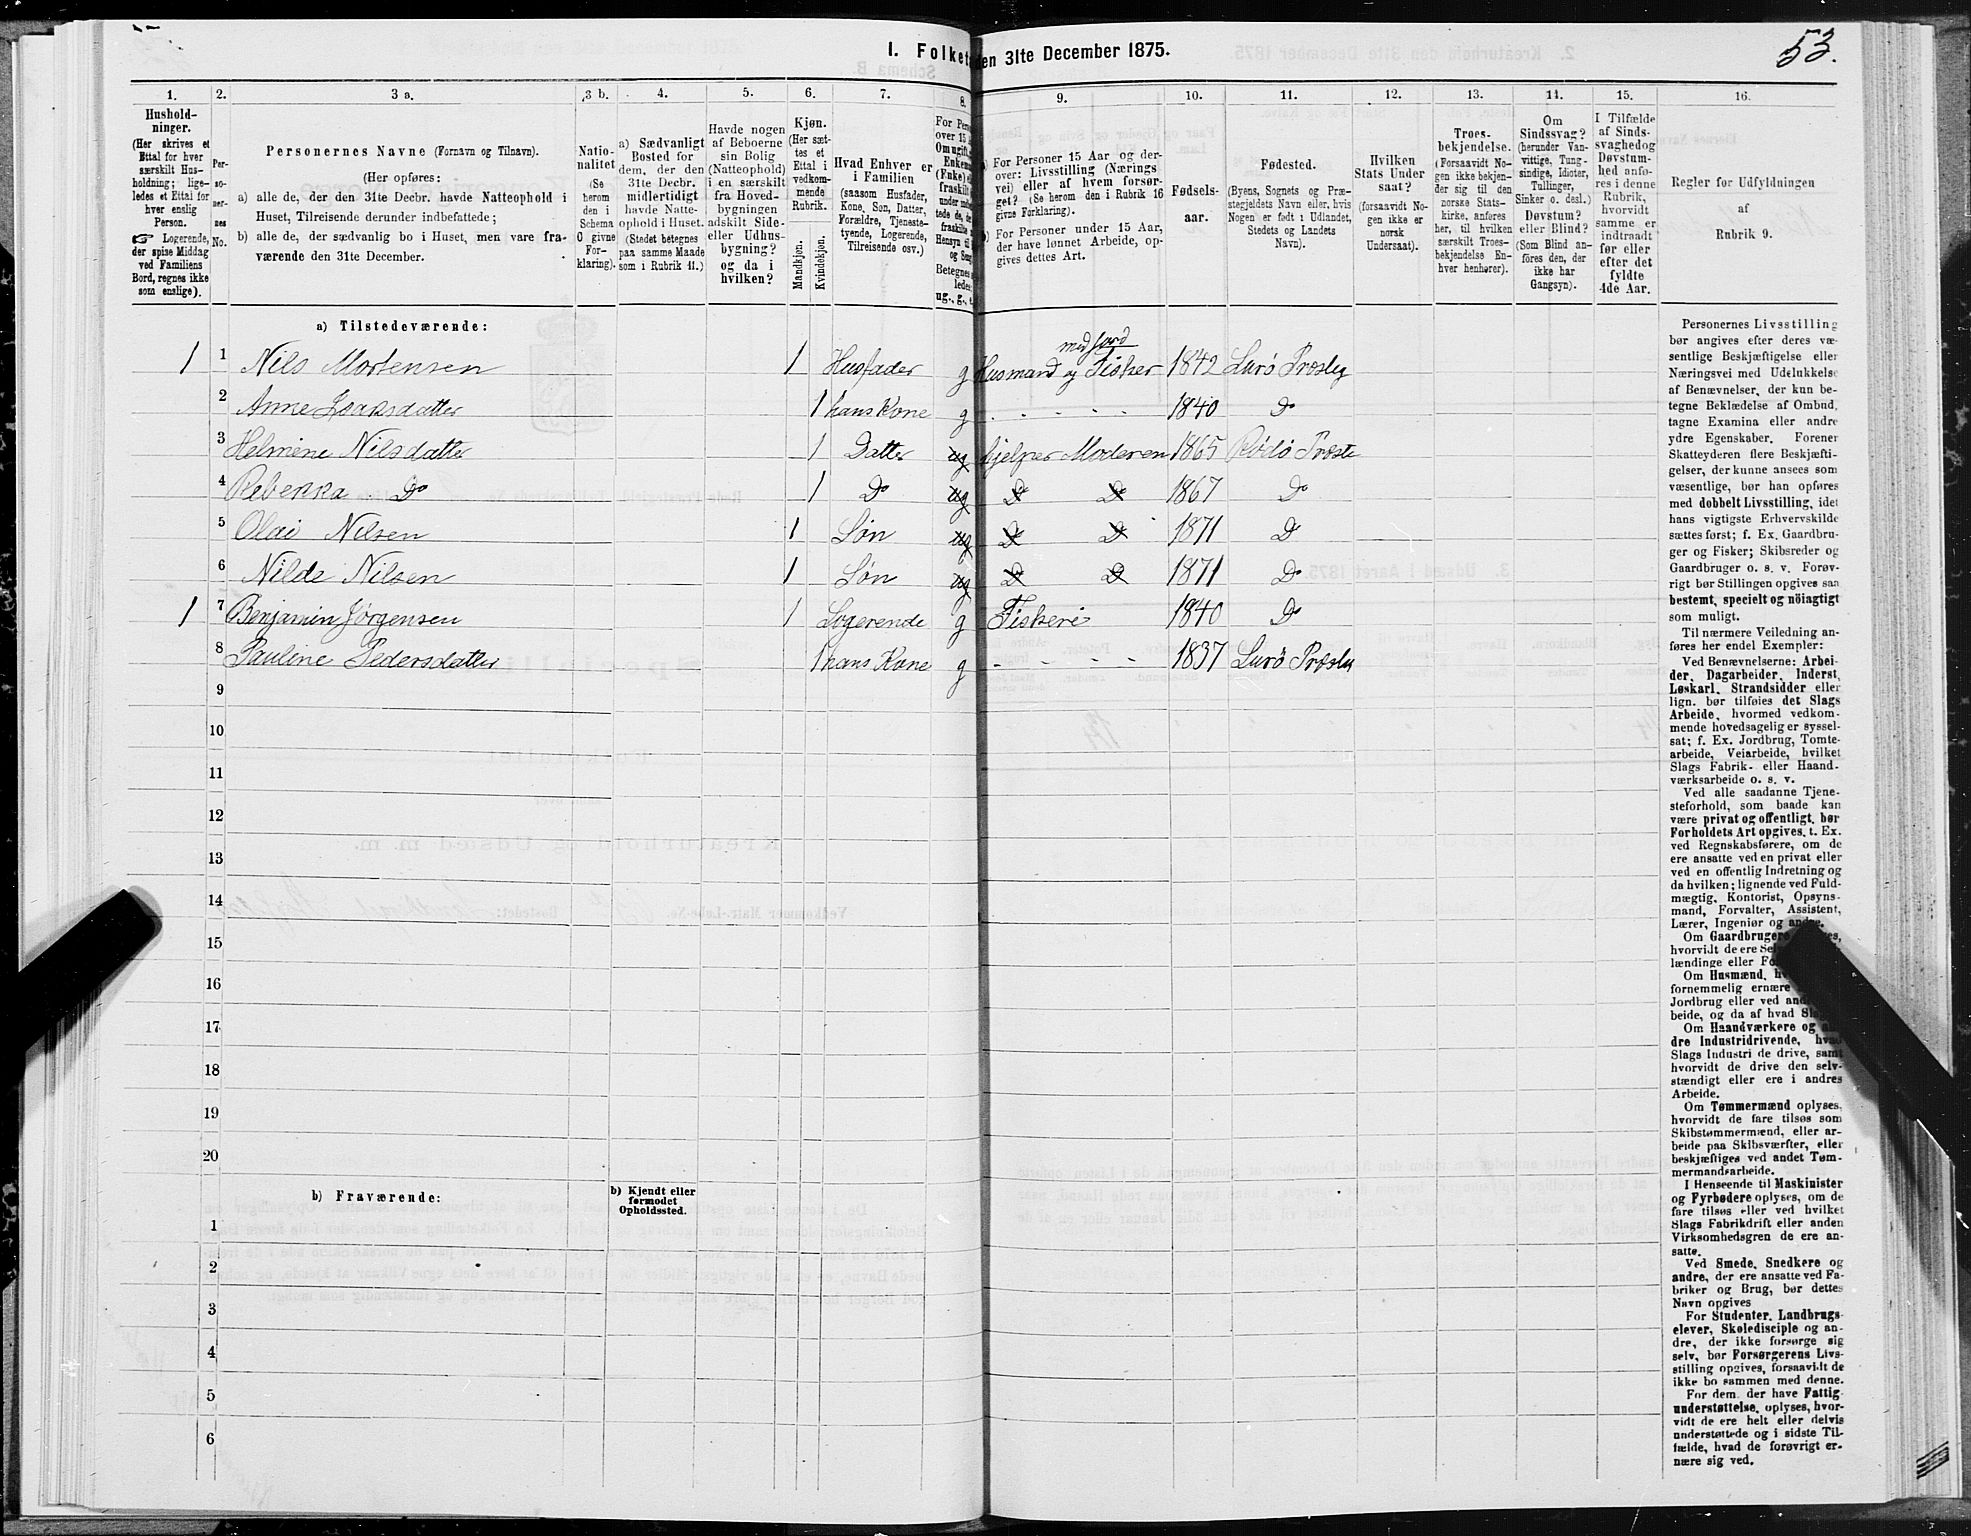 53.
I. Folket
den 31te December 1875.
1. 2. 3 a. 3 b. 4. 5. 6. 7. 8. 9. 10. 11. 12. 13. 14. 15. 16.
Hushold-
ninger.
(Her skrives et
Ettal for hver
særskilt Hus-
holdning; lige-
ledes et Ettal for
hver enslig
Person.
☞ Logerende,
der spise Middag
ved Familiens
Bord, regnes ikke
som enslige).
Per-
so-
ner-
nes
No.
Personernes Navne (Fornavn og Tilnavn).
(Her opføres:
a) alle de, der den 31te Decbr. havde Natteophold i
Huset, Tilreisende derunder indbefattede;
b) alle de, der sædvanlig bo i Huset, men vare fra-
værende den 31te December.
Natio-
nalitet
(Se
herom
den i
Schema
O givne
For-
klaring).
a) Sædvanligt
Bosted for
dem, der den
31te Decbr.
midlertidigt
havde Natte-
ophold i Huset.
(Stedet betegnes
paa samme Maade
som i Rubrik 11.)
Havde nogen
af Beboerne
sin Bolig
(Natteophold)
i en særskilt
fra Hoved-
bygningen
adskilt Side-
eller Udhus-
bygning?
og da i
hvilken?
Kjøn.
(Her sæt-
tes et
Ettal i
vedkom-
mende
Rubrik.
Mandkjøn.
Kvindekjøn.
Hvad Enhver er
i Familien
(saasom Husfader,
Kone, Søn, Datter,
Forældre, Tjeneste-
tyende, Logerende,
Tilreisende osv.)
For Pers
over 15
Om ugift,
Enkem
(Enke)
fraskilt
ug., g., e
For Personer 15 Aar og der-
over: Livsstilling (Nærings
vei) eller af hvem forsør-
get? (Se herom den i Rubrik 16
givne Forklaring).
For Personer under 15 Aar,
der have lønnet Arbeide, op-
gives dettes Art.
Fødsels-
aar.
Fødested.
(Byens, Sognets og Præ-
stegjeldets Navn eller, hvis
Nogen er født i Udlandet,
Stedets og Landets
Navn).
Hvilken
Stats Under
saat?
(forsaavidt No-
gen ikke er
norsk
Undersaat).
Troes-
bekjendelse.
(Forsaavidt No-
gen ikke bekjen-
der sig til den
norske Stats-
kirke, anføres
her, til hvilken
særskilt Troes-
bekjendelse En-
hver henhører).
Om
Sindssvag?
(herunder Van-
vittige, Tung-
sindige, Idioter,
Tullinger,
Sinker o. desl.)
Døvstum?
eller Blind?
(Som Blind an-
føres den, der
ikke har
Gangsyn).
I Tilfælde
af Sinds-
svaghedog
Døvstum-
hed anfø-
res i denne
Rubrik,
hvorvidt
samme er
indtraadt
før eller
efter det
fyldte
4de Aar.
Regler for Udfyldningen
af
Rubrik 9.
a) Tilstedeværende:
1 1 Nils Mortensen 1 Husfader g Husmand med Jord og Fisker 1842 Lurø Præstg
2 Anne Isaksdatter 1 hans Kone g 1840 Do
3 Helmine Nilsdatter 1 Datter ug hjelper Moderen 1865 Rødø Præste
4 Rebekka Do 1 Do ug D D 1867 Do
5 Olai Nilsen 1 Søn ug D D 1871 Do
6 Nilde Nilsen 1 Søn ug D D 1871 Do
1 7 Benjamin Jørgensen 1 Logerende g Fiskeri 1840 Do
8 Pauline Pedersdatter 1 hans Kone g 1837 Lurø Præstg
9
10
11
12
13
14
15
16
17
18
19
20
b) Fraværende:
b) Kjendt eller
formodet
Opholdssted.
1
2
3
4
5
6
Personernes Livsstilling
bør angives efter deres væ-
sentlige Beskjæftigelse eller
Næringsvei med Udelukkelse
af Benævnelser, der kun be-
tegne Beklædelse af Ombud,
tagne Examina eller andre
ydre Egenskaber. Forener
Skatteyderen flere Beskjæfti-
gelser, der kunne ansees som
væsentlige, bør han opføres
med dobbelt Livsstilling, idet
hans vigtigste Erhvervskilde
sættes først; f. Ex. Gaardbru-
ger og Fisker; Skibsreder og
Gaardbruger o. s. v. Forøv-
rigt bør Stillingen opgives saa
bestemt, specielt og nøiagtigt
som muligt.
Til nærmere Veiledning an-
føres her endel Exempler:
Ved Benævnelserne: Arbei-
der, Dagarbeider, Inderst,
Løskarl, Strandsidder eller
lign. bør tilføies det Slags
Arbeide, hvormed vedkom-
mende hovedsagelig er syssel-
sat; f. Ex. Jordbrug, Tomte-
arbeide, Veiarbeide, hvilket
Slags Fabrik- eller Haand-
værksarbeide o. s. v.
Ved alle saadanne Tjene-
steforhold, som baade kan
være privat og offentligt, bør
Forholdets Art opgives, t. Ex.
ved Regnskabsførere, om de
ere ansatte ved en privat eller
ved en offentlig Indretning og
da hvilken; lignende ved Fuld-
mægtig, Kontorist, Opsyns-
mand, Forvalter, Assistent,
Lærer, Ingeniør og andre.
Om Gaardbrugere
hvorvidt de ere
lændinge eller
Om Husmænd,
fornemmelig ernære
Jordbrug eller ved
beide, og da af hvad
Om Haandværkere og
dre Industridrivende, hvad
Slags Industri de drive, samt
hvorvidt de drive den selv-
stændigt eller ere i andres
Arbeide.
Om Tømmermænd oplyses,
hvorvidt de fare tilsøs som
Skibstømmermænd, eller ar-
beide paa Skibsværfter, eller
beskjæftiges ved andet Tøm-
mermandsarbeide.
I Henseende til Maskinister
og Fyrbødere oplyses, om de
fare tilsøs eller ved hvilket
Slags Fabrikdrift eller anden
Virksomhedsgren de ere an-
satte.
Ved Smede, Snedkere og
andre, der ere ansatte ved Fa-
briker og Brug, bør dettes
Navn opgives
For Studenter, Landbrugs-
elever, Skoledisciple og an-
dre, der ikke forsørge sig
selv, bør Forsørgerens Livs-
stilling opgives, forsaavidt de
ikke bo sammen med denne.
For dem, der have Fattig
understøttelse, oplyses, hvor-
vidt de ere helt eller delvis
understøttede og i sidste Til-
fælde, hvad de forøvrigt er-
nære sig ved.